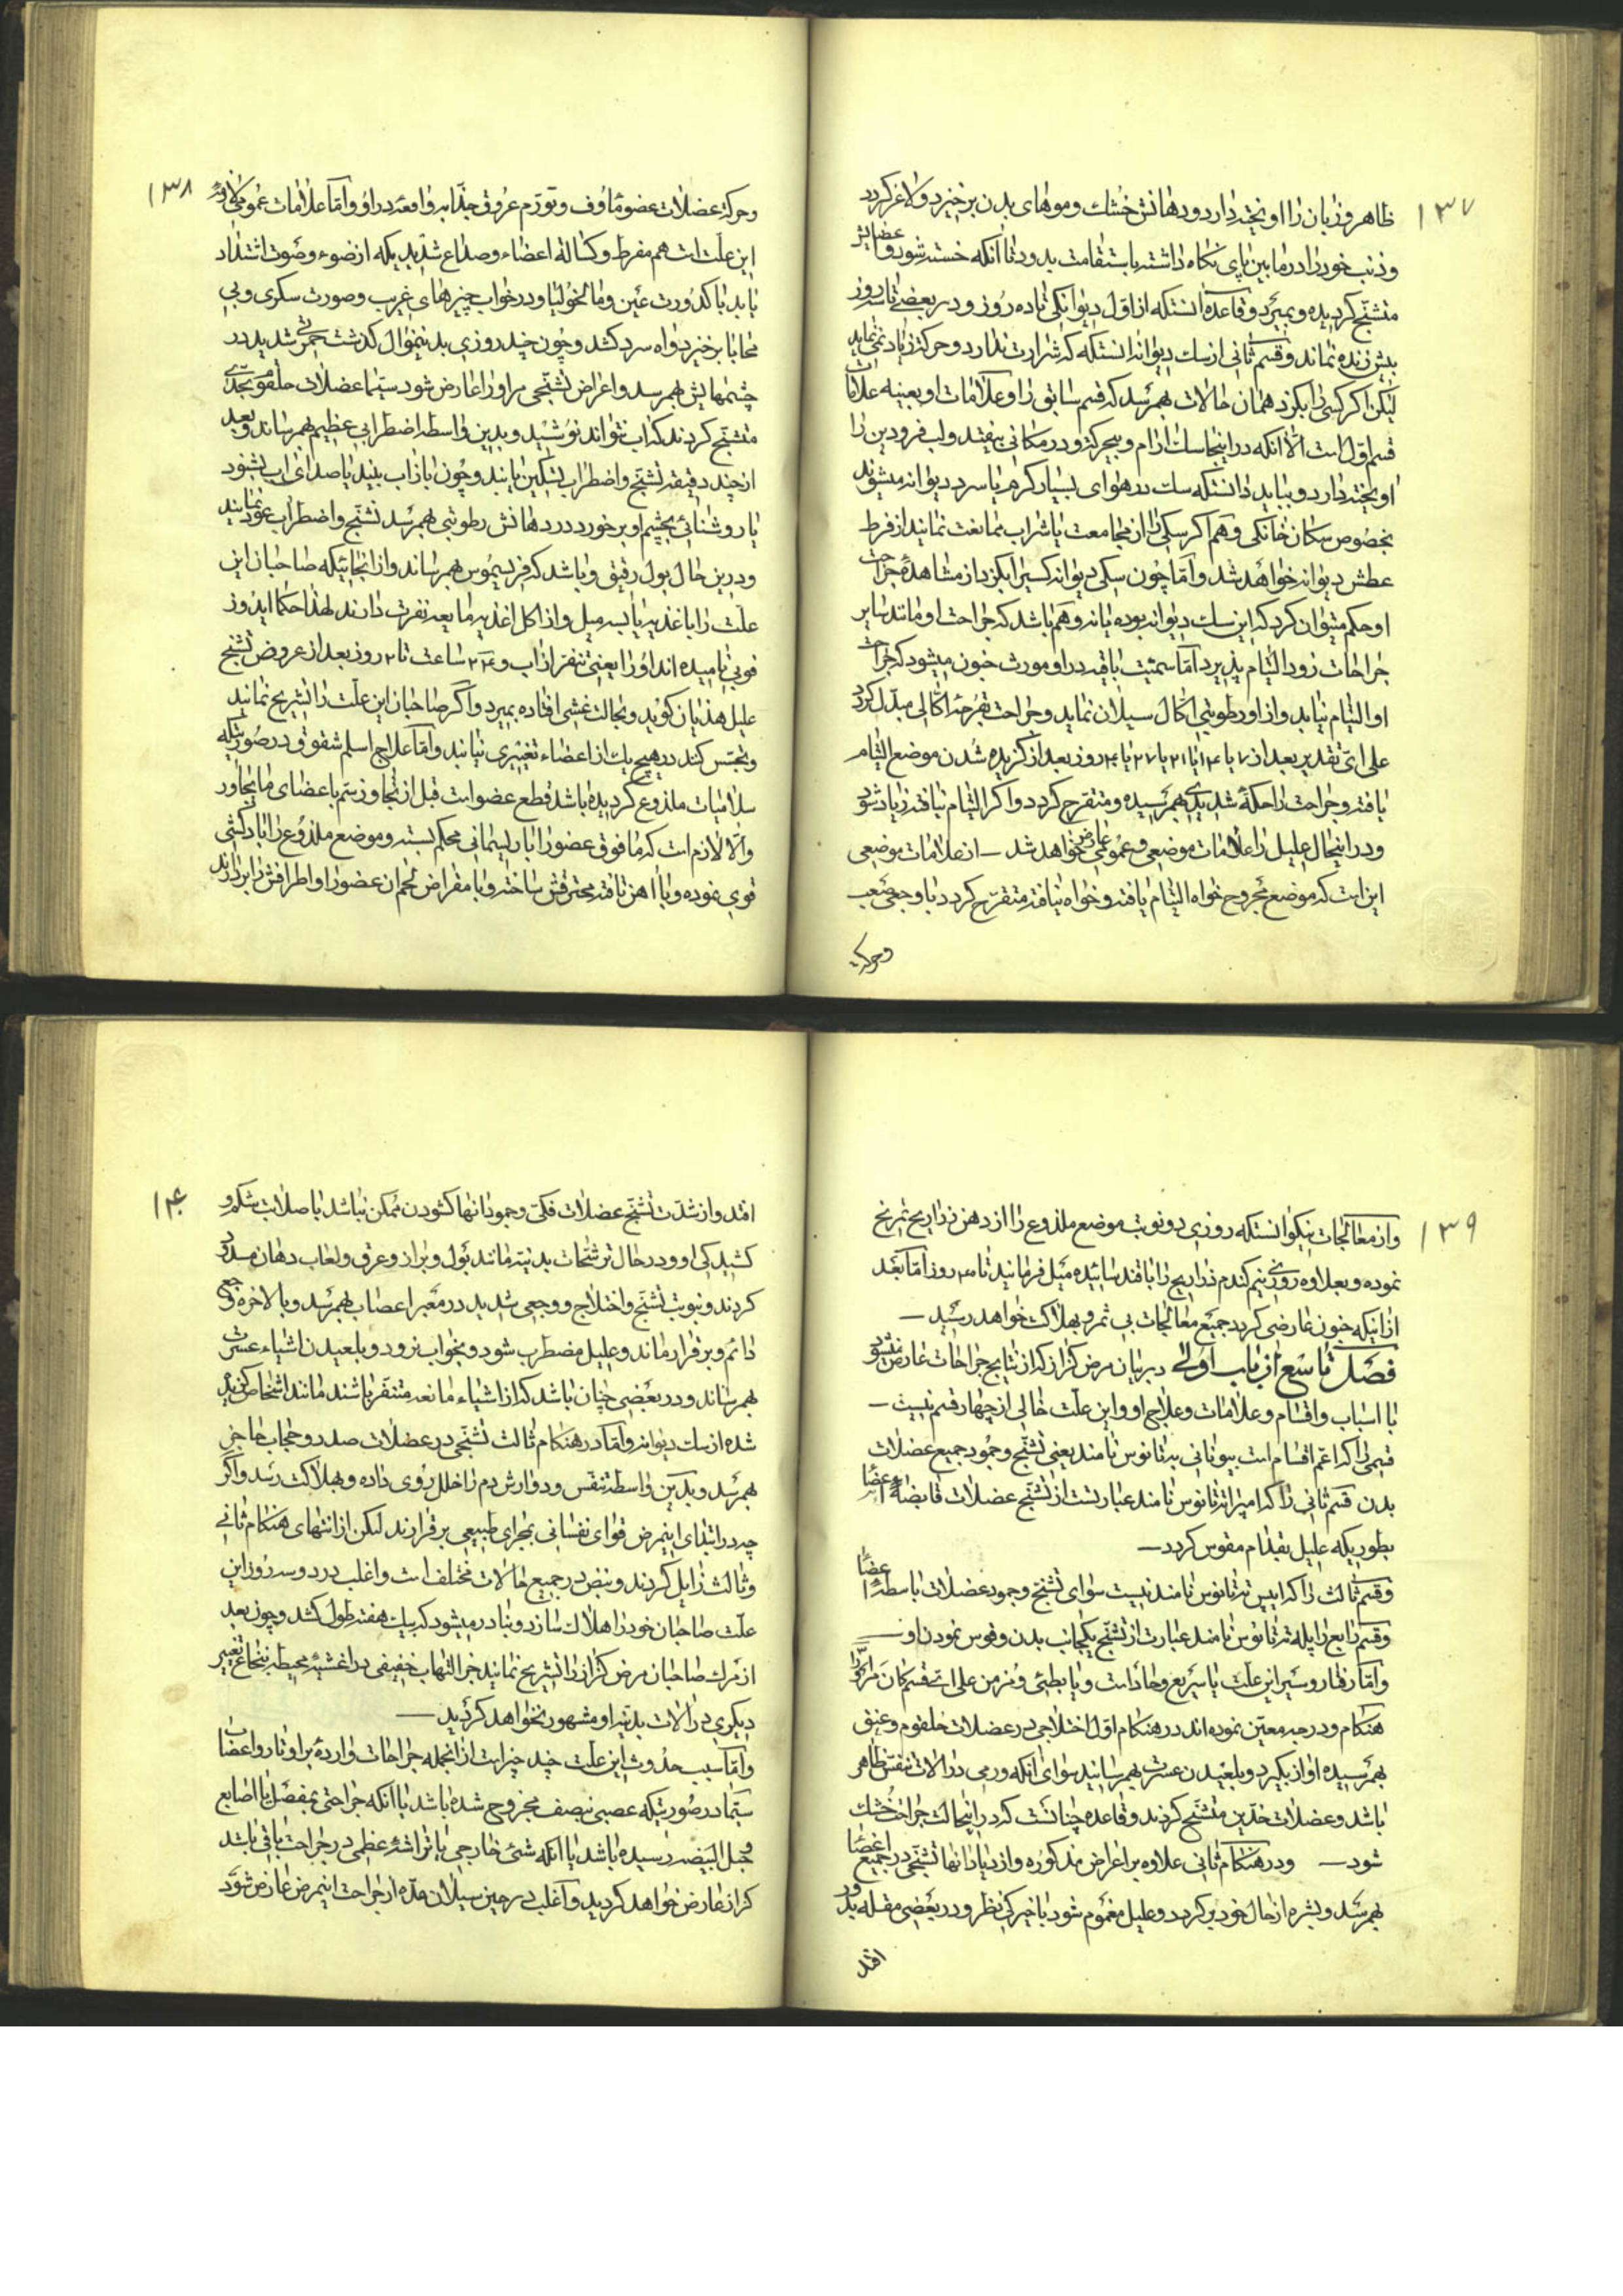 ۱۳۷
ظاهر و زبان را اویخته دارد و دهانش خشك و موهای بدن برخیزد و لاغر کردد
و ذنب خود را در مابین پای نکاه داشته باستقامت بدود تا آنکه خسته شود و عضلاتش
متشنّج کردیده و بمیرد و قاعده آنستکه از اوّل دیوانکی تا ده روز و در بعضی تا سه روز
بیش زنده نماند و قسم ثانی از سك دیوانه آنستکه که شرارت ندارد و حرکت زیاد نمی‌نماید
لیکن اکر کسی را بکزد همان حالات بهمرسد که قسم سابق را و علامات او بعینه علامات
قسم اوّل است الّا آنکه در اینجا سك آرام و بیحرکت و در مکانی بیفتد و لب فرودین را
اویخته دارد و بباید دانستکه سك در هوای بسیار کرم یا سرد دیوانه میشوند
بخصوص سکان خانکی و هم اکر سکی را از مجامعت یا شراب ممانعت نمایند از فرط
عطش دیوانه خواهد شد و امّا چون سکی دیوانه کسیرا بکزد از مشاهدهٔ جراحت
او حکم میتوان کرد که این سك دیوانه بوده یا نه و هم باشد که جراحت او مانند سایر
جراحات زود التیام پذیرد امّا سمیّت باقیه در او مورث خون میشود که جراحت
او التیام نیابد و از او رطوبتی اکّال سیلان نماید و جراحت بقرحهٔ اکّالی مبدّل کردد
علی ایّ تقدیر بعد از ۷ یا ۱۴ یا ۲۱ یا ۲۷ یا ۴۰ روز بعد از کزیده شدن موضع التیام
یافته و جراحت را حکّهٔ شدیدی بهمرسیده و متقرّح کردد و اکر التیام نیافته زیاد شود
و در اینحال علیل را علامات موضعی و عمومی عارض خواهد شد – از علامات موضعی
این است که موضع مجروح خواه التیام یافته و خواه نیافته متقرّح کردد با وجعی صعب
وحرکت
۱۳۸
وحرکت عضلات عضو ماؤف و تورّم عروق جذّابه واقعه در او و امّا علامات عمومی
این علّت است هم مفرط و کسالة اعضاء و صداع شدید بکه از ضوء و صوت اشتداد
یابد با کدورت عین و مالیخولیا و در خواب چیزهای غریب و صورت سکری و بی
محابا برخیزد و اه سرد کشد و چون چند روزی بدینمنوال کذشت حمرتی شدید در
چشمهایش بهمرسد و اعراض تشنّجی مر او را عارض شود سیّما عضلات حلقوم بحدّی
متشنّج کردند که اب نتواند نوشید و بدین واسطه اضطرابی عظیم بهمرساند و بعد
از چند دقیقه تشنّج و اضطراب تسکین یابند و چون باز اب بیند یا صدای اب بشنود
یا روشنائی بچشم او برخورد در دهانش رطوبتی بهمرسد تشنّج و اضطراب عود نمایند
و در این حال بول رقیق و باشد که فریسموس بهمرساند و از انجائیکه صاحبان این
علّت را باغذیه یابسه میل و از اکل اغذیه مایعه نفرت دارند لهذا حکما ایدروز
فوبی نامیده اند او را یعنی تنفّر از اب و ۲۴ ساعت تا ۲ روز بعد از عروض تشنّج
علیل هذیان کوید و بحالت غشی افتاده بمیرد و اگر صاحبان این علّت را تشریح نمایند
و تجسّس کنند در هیچ یك از اعضاء تغییری نیابند و امّا علاج اسلم شقوق در صورتیکه
سلامیات ملذوع کردیده باشد قطع عضو است قبل از تجاوز سم باعضای مایجاور
و الّا لازم است که مافوق عضو را با ریسمانی محکم بسته و موضع ملذوع را بادکشی
قوی نموده و با آهن تافته محترقش ساخته و با مقراض لحم ان عضو را و اطرافش را بردارند
۱۳۹
و از معالجات نیکو انستکه روزی دو نوبت موضع ملذوع را از دهن ذراریح تمریخ
نموده و بعلاوه روزی نیم کندم ذراریح را با قند سائیده میل فرمایند تا ۳۰ روز امّا بعد
از اینکه خون عارضی کردد جمیع معالجات بی ثمر و بهلاکت خواهد رسید –
فصل تاسع از باب اوّل در بیان مرض کزاز که از نتایج جراحات عارض میشود
با اسباب و اقسام و علامات و علاج او و این علّت خالی از چهار قسم نیست –
قسمی را که اعم اقسام است بیونانی به تتانوس نامند یعنی تشنّج وجمود جمیع عضلات
بدن قسم ثانی را که امپراتتانوس نامند عبارتست از تشنّج عضلات قابضهٔ اعضا
بطوریکه علیل بقدّام مقوس کردد –
و قسم ثالث را که اپیس تتانوس نامند نیست سوای تشنّج وجمود عضلات باسطهٔ اعضا
و قسم رابع را پله تتانوس نامند عبارت از تشنّج یکجانب بدن و قوس نمودن او –
و امّا رفتار و سیر این علّت یا سریع و حاد است و یا بطئی و مزمن علی ایّ قسم کان مر او را
هنکام و درجه معیّن نموده اند در هنکام اوّل اختلاجی در عضلات حلقوم و عنق
بهمرسیده اواز بکیرد و بلعیدن عسرت بهمرسانید سوای آنکه ورمی در الات تنفّس ظاهر
باشد و عضلات خدّین متشنّج کردند و قاعده چنانست که در اینحالت جراحت خشك
شود – و در هنکام ثانی علاوه بر اعراض مذکوره و ازدیاد انها تشنّجی در جمیع اعضا
بهمرسد و بشره از حال خود برکردد و علیل مغموم شود با خیرکی نظر و در بعضی مقله بدور
افتد
۱۴۰
افتد و از شدّت تشنّج عضلات فکّی وجود انها کشودن ممکن نباشد با صلابت شکم و
کشیدکی او و در حال ترشّحات بدنیّه مانند بول و براز و عرق و لعاب دهان مسدود
کردند و بنوبت تشنّج و اختلاج و وجعی شدید در معبر اعصاب بهمرسد و بالاخره وجع
دائم و برقرار ماند و علیل مضطرب شود و بخواب نرود و بلعیدن اشیاء عسرتی
بهمرساند و در بعضی چنان باشد که از اشیاء مانعه متنفّر باشند مانند اشخاص کزیده
شده از سك دیوانه و امّا در هنکام ثالث تشنّجی در عضلات صدر و حجاب حاجز
بهمرسد و بدین واسطه تنفّس و دوارش دم را خلل روی داده و بهلاکت رسد و اگر
چه در ابتدای اینمرض قوای نفسانی بمجرای طبیعی برقرارند لیکن از انتهای هنکام ثانی
و ثالث زایل کردند و نبض در جمیع حالات مختلف است و اغلب در دو سه روز این
علّت صاحبان خود را هلاك سازد و نادر میشود که بیك هفته طول کشد و چون بعد
از مرك صاحبان مرض کزاز را تشریح نمایند جز التهاب خفیفی در اغشیهٔ محیطه بنخاع تغییر
دیکری در الات بدنیّه او مشهود نخواهد کردید –
و امّا سبب حدوث این علّت چند چیز است از انجمله جراحات واردهٔ بر اوتار و اعصاب
سیّما در صورتیکه عصبی بنصف مجروح شده باشد یا انکه جراحتی بمفصل یا اصابع
و حبل البیضه رسیده باشد یا انکه شئ خارجی یا تراشهٔ عظمی در جراحت باقی باشد
کزاز عارض خواهد کردید و اغلب در حین سیلان مدّه از جراحت اینمرض عارض شود